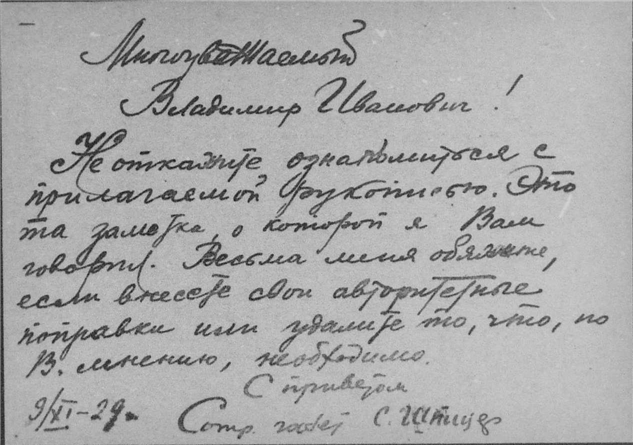 Многоуважаемый
Владимир Иванович!
Не откажите ознакомиться с
прилагаемой рукописью. Это
та заметка, о которой я Вам
говорил. Весьма меня обяжете,
если внесете свои авторитетные
поправки или удалите то, что, по
В. мнению, необходимо.
С приветом
9/XI-29г. С. Шпицер